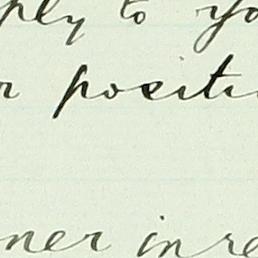 ply to yo
r positi
ner in re